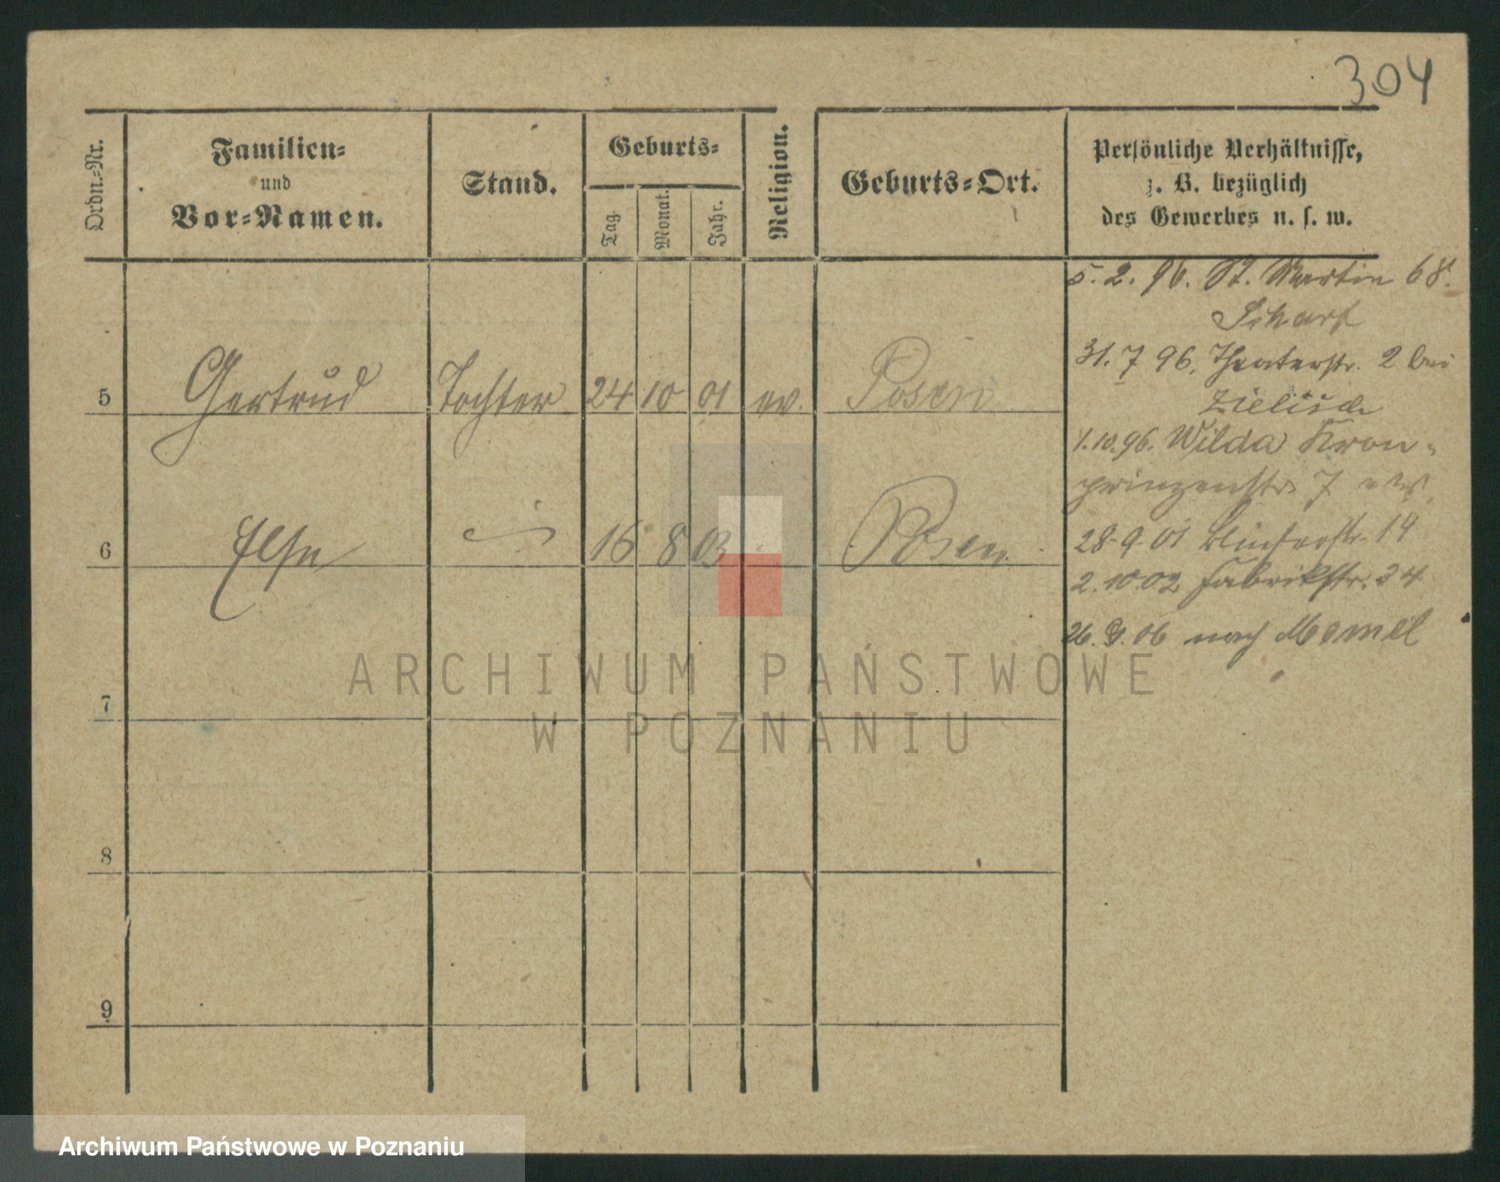 304
Ordn.-Nr.
Familien-
und
Vor-Namen.
Stand.
Geburts-
Tag.
Monat.
Jahr.
Religion.
Geburts-Ort.
Persönliche Verhältnisse,
z. B. bezüglich
des Gewerbes u. s. w.
5. 2. 96. St. Martin 68.
Scharf
31. 7 96. Theaterstr. 2 bei
Zielisch
1.10.96. Wilda Kron-
prinzenstr. 7
28.9.01 14
2.10.02 Fabrikstr. 34
26. 9. 06 nach Memel
5 Gertrud Tochter 24 10 01 ev. Posen
6 Else 16 8 03 Posen
7
8
9
ARCHIWUM PAŃSTWOWE
W POZNANIU
Archiwum Państwowe w Poznaniu